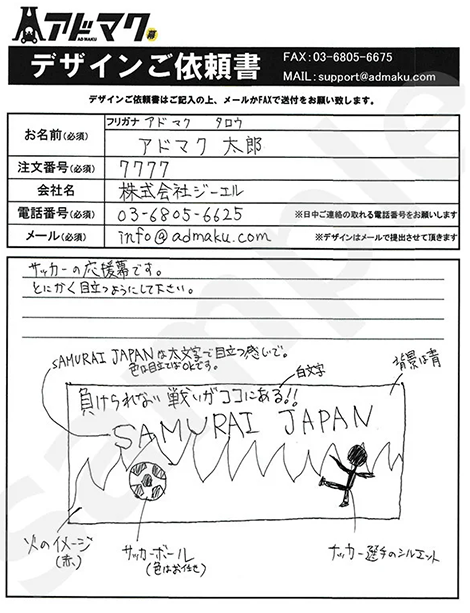 アドマク幕
AD MAKU
デザインご依頼書
FAX:03-6805-6675
MAIL:support@admaku.com
デザインご依頼書はご記入の上、メールかFAXで送付をお願い致します。
フリガナ アドマク タロウ
お名前(必須) アドマク 太郎
注文番号(必須) 7777
会社名 株式会社ジーエル
電話番号(必須) 03-6805-6625 ※日中ご連絡の取れる電話番号をお願いします
メール(必須) info@admaku.com ※デザインはメールで提出させて頂きます
サッカーの応援幕です。
とにかく目立つようにして下さい。
SAMURAI JAPANは太文字で目立つ感じで。
色は目立てばOKです。
白文字
背景は青
負けられない戦いがココにある!!
SAMURAI JAPAN
火のイメージ
(赤)
サッカーボール
(色はお任せ)
サッカー選手のシルエット
sample